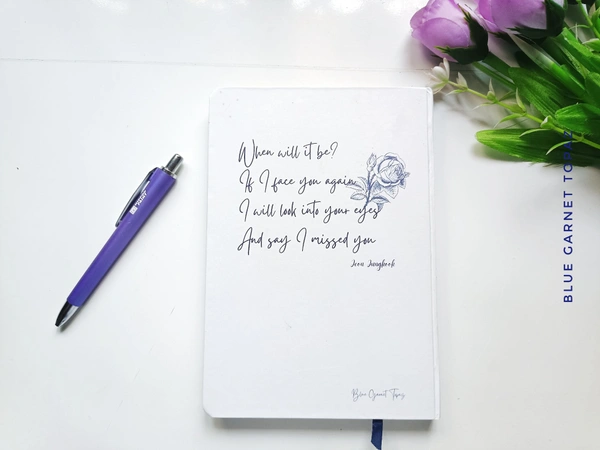 When will it be?
If I face you again
I will look into your eyes
And say I missed you
Jeon Jungkook
Blue Garnet Topaz
BLUE GARNET TOPAZ